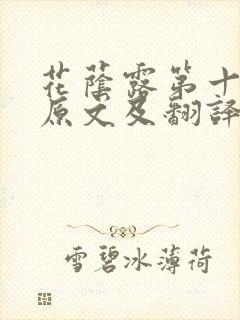 花蔭露第十
原文及翻譯
雪碧冰薄荷